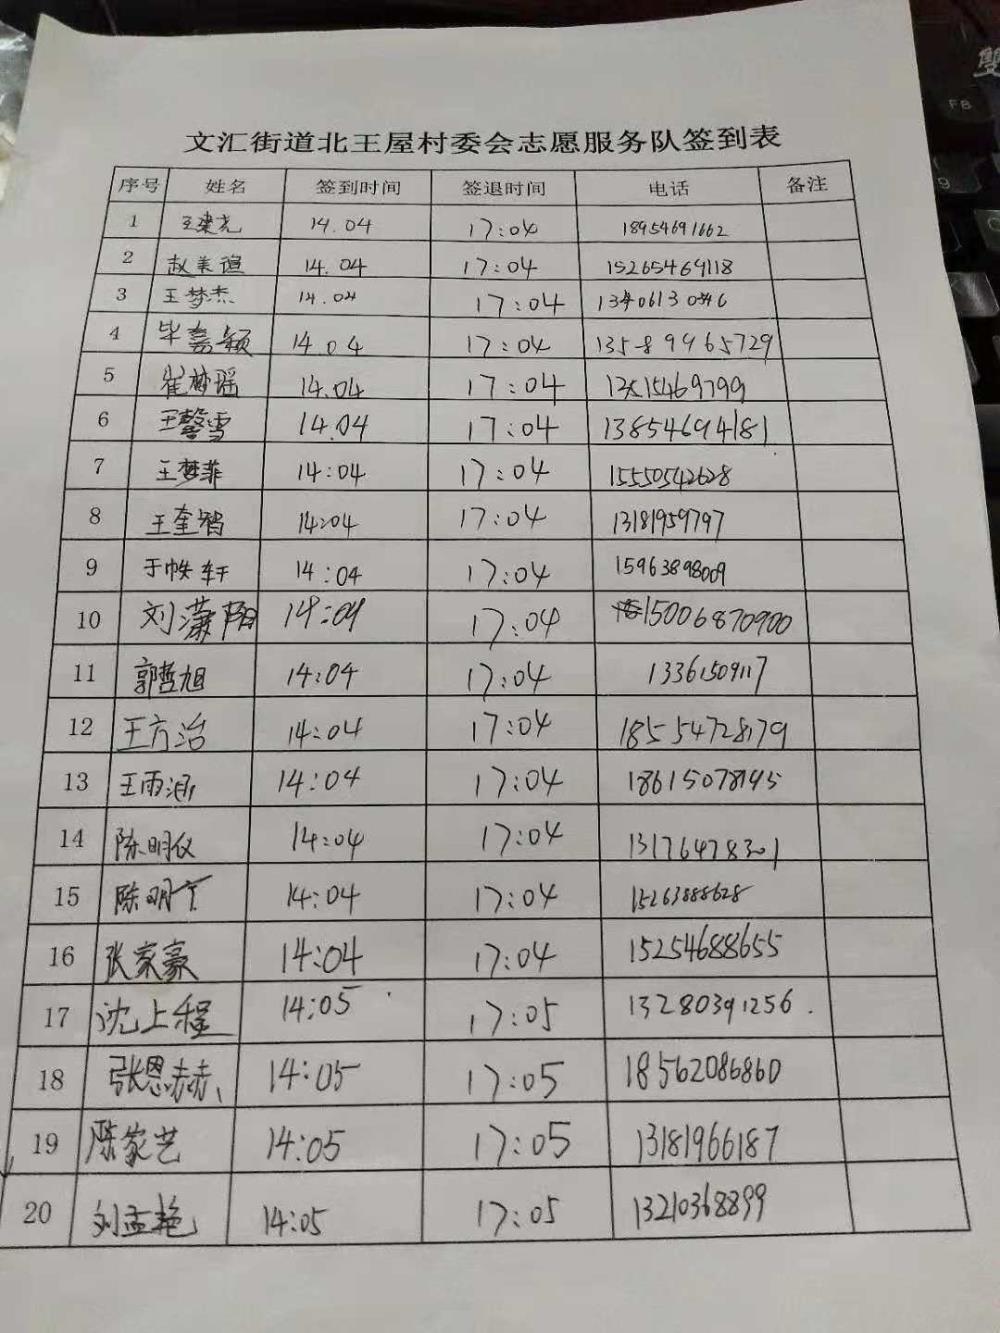 文汇街道北王屋村委会志愿服务队签到表
序号 姓名 签到时间 签退时间 电话 备注
1 王建尧 14.04 17:04 18954691662
2 赵美谊 14.04 17:04 15265469118
3 王梦杰 14.04 17:04
4 毕嘉颖 14.04 17:04 13589965729
5 崔梦瑶 14.04 17:04
6 王馨雪 14.04 17:04 13854694181
7 王梦菲 14:04 17:04 15550542628
8 王奎智 14:04 17:04 13181959797
9 于帙轩 14:04 17:04 15963898009
10 刘潇阳 14:04 17:04 15006870900
11 郭哲旭 14:04 17:04 13361509117
12 王方治 14:04 17:04 18554728179
13 王雨涵 14:04 17:04 18615078195
14 陈明仪 14:04 17:04 13176478301
15 陈明 14:04 17:04 15263888628
16 张家豪 14:04 17:04 15254688655
17 沈上程 14:05 17:05 13280391256.
18 张恩赫 14:05 17:05 18562086860
19 陈家艺 14:05 17:05 13181966187
20 刘孟艳 14:05 17:05 13210368899
F8
9